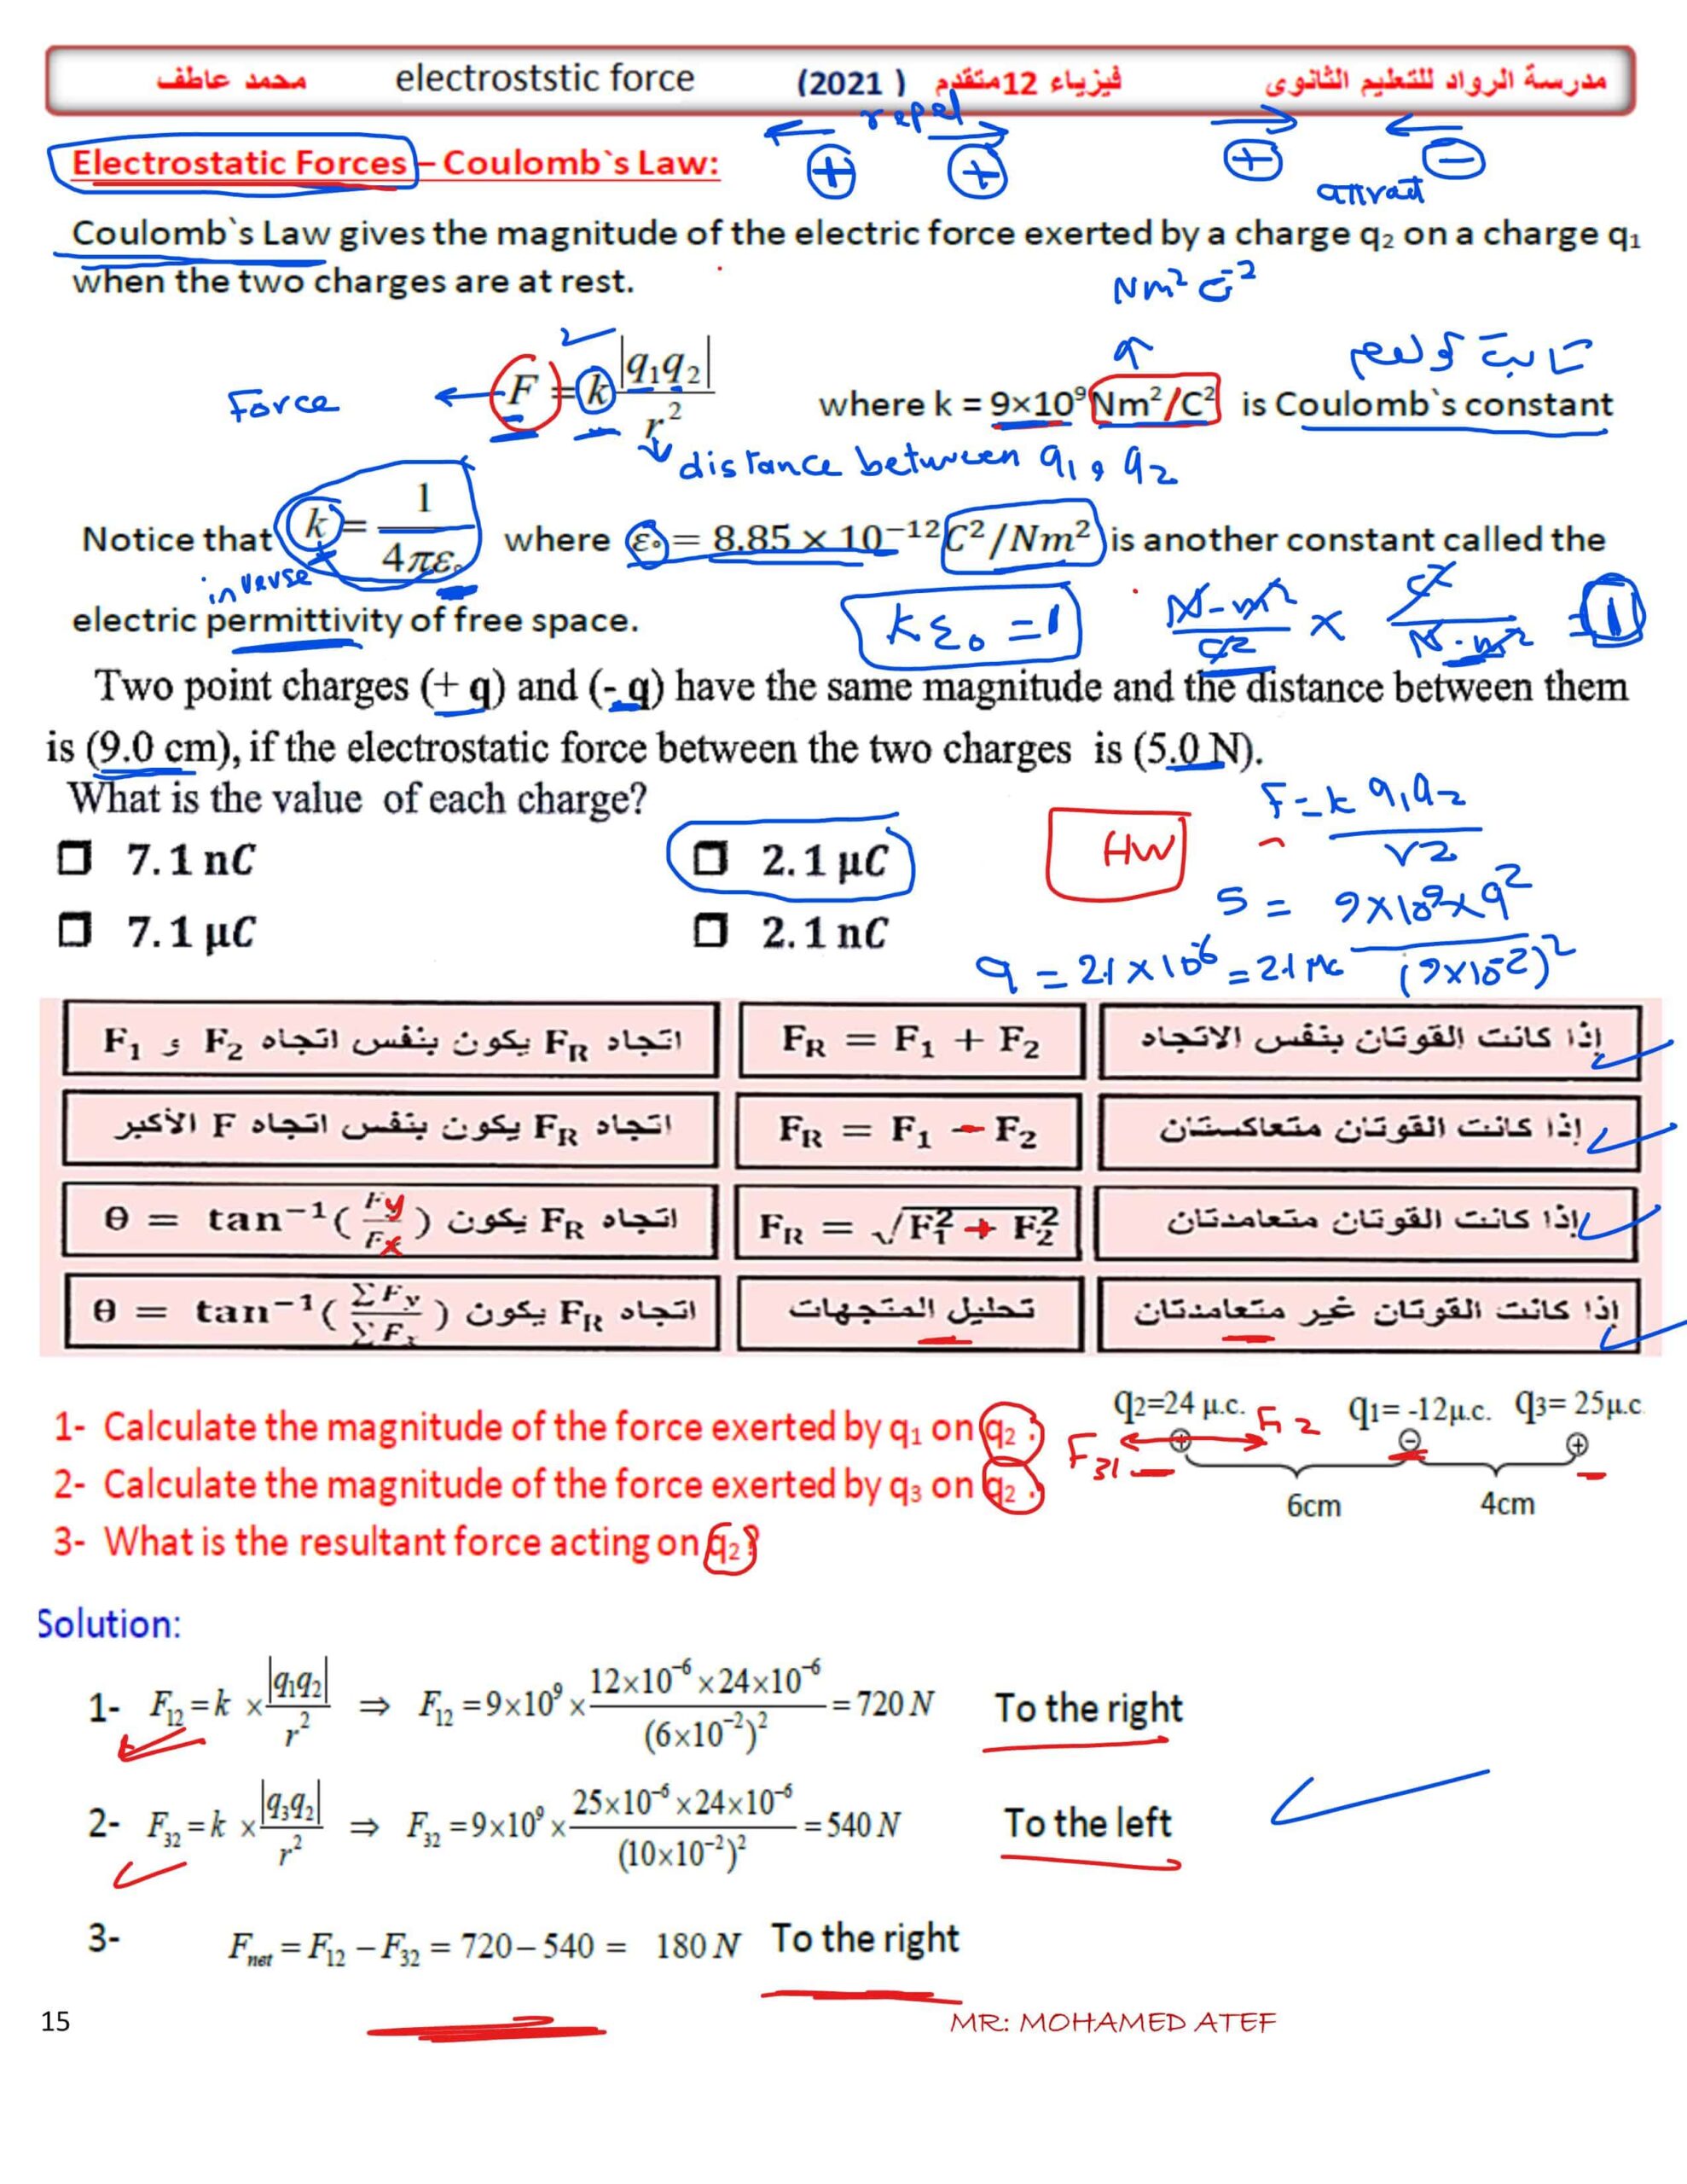 محمد عاطف electroststic force (2021 ) فيزياء 12متقدم مدرسة الرواد للتعليم الثانوى
repel
Electrostatic Forces – Coulomb`s Law:
+ + + −
attract
Coulomb`s Law gives the magnitude of the electric force exerted by a charge q₂ on a charge q₁
when the two charges are at rest.
Nm² C⁻²
ثابت كولوم
Force F = k |q₁q₂| / r² where k = 9×10⁹ Nm²/C² is Coulomb`s constant
distance between q₁, q₂
Notice that k = 1 / 4πε₀ where ε₀ = 8.85 × 10⁻¹² C²/Nm² is another constant called the
inverse
electric permittivity of free space.
kε₀ = 1 N-m² / C² × C² / N·m² = 1
Two point charges (+ q) and (- q) have the same magnitude and the distance between them
is (9.0 cm), if the electrostatic force between the two charges is (5.0 N).
What is the value of each charge?
F = k q₁q₂ / r²
☐ 7.1 nC ☐ 2.1 µC
HW
5 = 9×10⁹×q² / (9×10⁻²)²
☐ 7.1 µC ☐ 2.1 nC
q = 2.1 × 10⁻⁶ = 2.1 µC
إذا كانت القوتان بنفس الاتجاه F_R = F₁ + F₂ اتجاه F_R يكون بنفس اتجاه F₂ و F₁
إذا كانت القوتان متعاكستان F_R = F₁ − F₂ اتجاه F_R يكون بنفس اتجاه F الأكبر
إذا كانت القوتان متعامدتان F_R = √F₁² + F₂² اتجاه F_R يكون θ = tan⁻¹(Fy / Fx)
إذا كانت القوتان غير متعامدتان تحليل المتجهات اتجاه F_R يكون θ = tan⁻¹(∑Fy / ∑Fx)
q₂=24 µ.c. q₁= -12µ.c. q₃= 25µ.c.
1- Calculate the magnitude of the force exerted by q₁ on q₂ .
F₃₁ + F₁₂ − +
2- Calculate the magnitude of the force exerted by q₃ on q₂ .
6cm 4cm
3- What is the resultant force acting on q₂?
Solution:
1- F₁₂ = k × |q₁q₂| / r² ⇒ F₁₂ = 9×10⁹ × 12×10⁻⁶ ×24×10⁻⁶ / (6×10⁻²)² = 720 N To the right
2- F₃₂ = k × |q₃q₂| / r² ⇒ F₃₂ = 9×10⁹ × 25×10⁻⁶ ×24×10⁻⁶ / (10×10⁻²)² = 540 N To the left
3- F_net = F₁₂ − F₃₂ = 720 − 540 = 180 N To the right
15 MR: MOHAMED ATEF